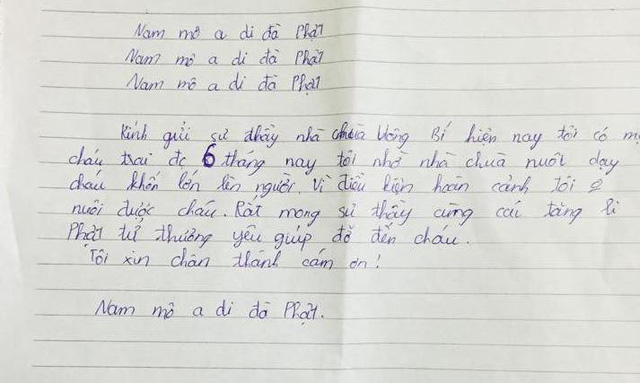 Nam mô a di đà Phật
Nam mô a di đà Phật
Nam mô a di đà Phật
Kính gửi sư thầy nhà chùa Uông Bí hiện nay tôi có
cháu trai đc 6 tháng nay tôi nhờ nhà chùa nuôi dạy
cháu khôn lớn lên người. Vì điều kiện hoàn cảnh tôi
nuôi được cháu. Rất mong sư thầy cùng các tăng li
Phật tử thương yêu giúp đỡ đến cháu.
Tôi xin chân thành cám ơn!
Nam mô a di đà Phật.